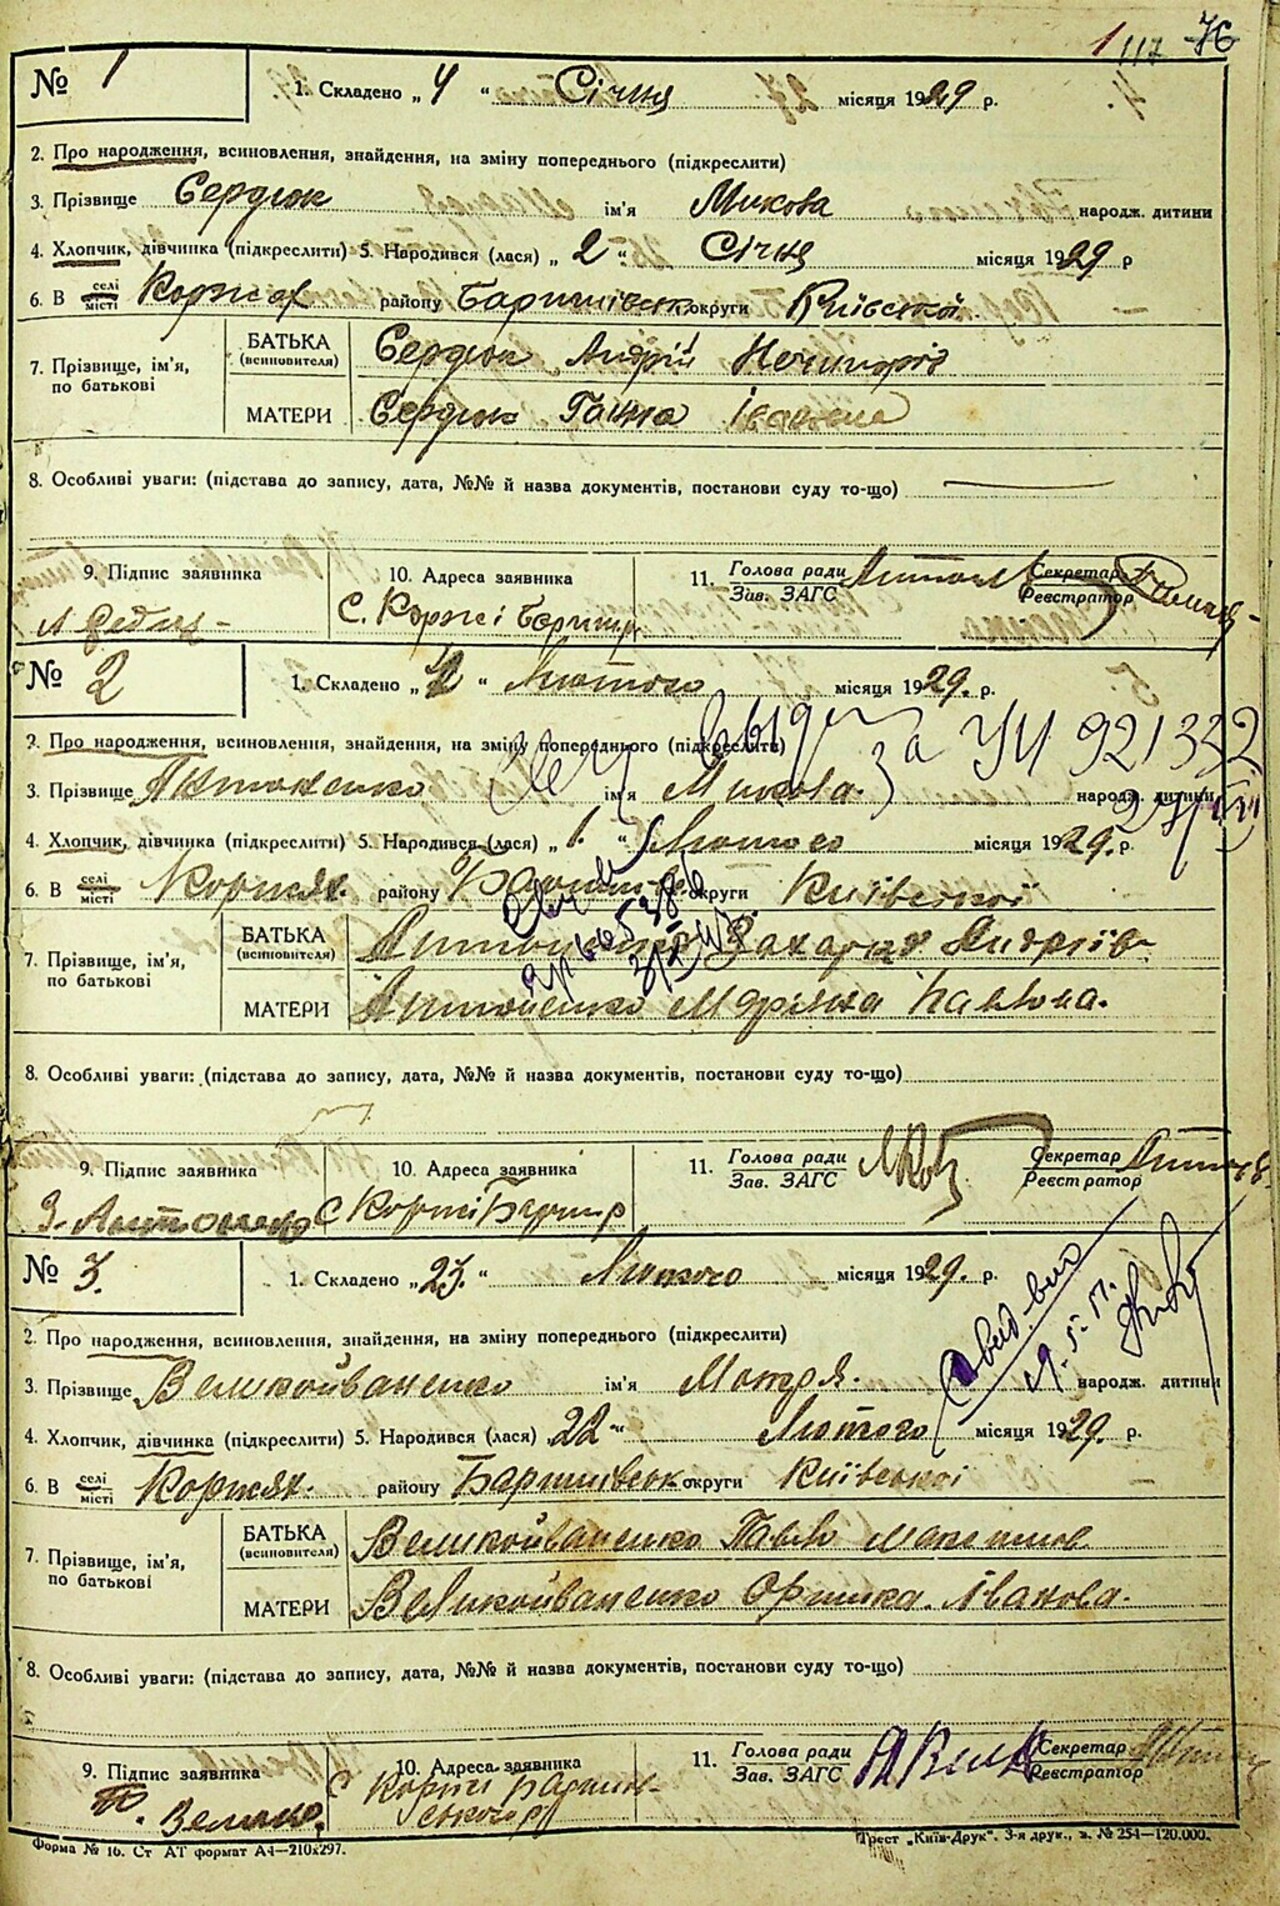 1 117 76
№ 1
1. Складено „ 4 “ Січня місяця 1929 р.
2. Про народження, всиновлення, знайдення, на зміну попереднього (підкреслити)
3. Прізвище Сердюк ім'я Микола народж. дитини
4. Хлопчик, дівчинка (підкреслити) 5. Народився (лася) „ 2 “ Січня місяця 1929 р
6. В селі місті Коржах району Баришівськ округи Київської
БАТЬКА (всиновителя) Сердюк Андрій Нечипорів
7. Прізвище, ім'я, по батькові
МАТЕРИ Сердюк Ганна Іванівна
8. Особливі уваги: (підстава до запису, дата, №№ й назва документів, постанови суду то-що)
9. Підпис заявника 10. Адреса заявника 11. Голова ради Зав. ЗАГС Секретар Реєстратор
С. Коржі Баришр.
№ 2
1. Складено „ “ Лютого місяця 1929. р.
2. Про народження, всиновлення, знайдення, на зміну попереднього (підкреслити)
за УЧ 921332
3. Прізвище Антоненко ім'я Микола. народж. дитини
4. Хлопчик, дівчинка (підкреслити) 5. Народився (лася) „ 1. “ Лютого місяця 1929. р.
6. В селі місті Коржях. району округи Київської
БАТЬКА (всиновителя) Антоненко Захарія Андріїв
7. Прізвище, ім'я, по батькові
МАТЕРИ Антоненко Мар'яна Павлова.
8. Особливі уваги: (підстава до запису, дата, №№ й назва документів, постанови суду то-що)
9. Підпис заявника 10. Адреса заявника 11. Голова ради Зав. ЗАГС Секретар Реєстратор
З. Антоненко С Коржі Баришр
№ 3.
1. Складено „ 23. “ Лютого місяця 1929. р.
2. Про народження, всиновлення, знайдення, на зміну попереднього (підкреслити)
3. Прізвище Великойваненко ім'я Мотря. народж. дитини
4. Хлопчик, дівчинка (підкреслити) 5. Народився (лася) 22 “ Лютого місяця 1929. р.
6. В селі місті Коржях. району Баришівськ округи Київської
БАТЬКА (всиновителя) Великойваненко Павло Максимов
7. Прізвище, ім'я, по батькові
МАТЕРИ Великойваненко Оришка. Іванова.
8. Особливі уваги: (підстава до запису, дата, №№ й назва документів, постанови суду то-що)
9. Підпис заявника 10. Адреса заявника 11. Голова ради Зав. ЗАГС Секретар Реєстратор
С Коржі Баришівського р
Форма № 16. Ст АТ формат А4—210x297. Трест „Київ-Друк“. 3-я друк., з. № 254—120.000.